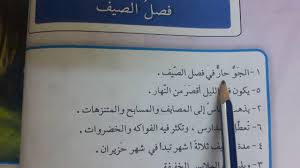 فصل الصيف
١- الجَوُّ حارٌّ في فصل الصّيف .
٥- يكون الليل أقصرَ من النّهار .
٢- يذهب إلى المصايف والمسابح والمتنزهات .
٦- وتكثر فيه الفواكه والخضروات .
٤- مدة ثلاثة أشهر تبدأ في شهر حزيران .
الملابس الخفيفة